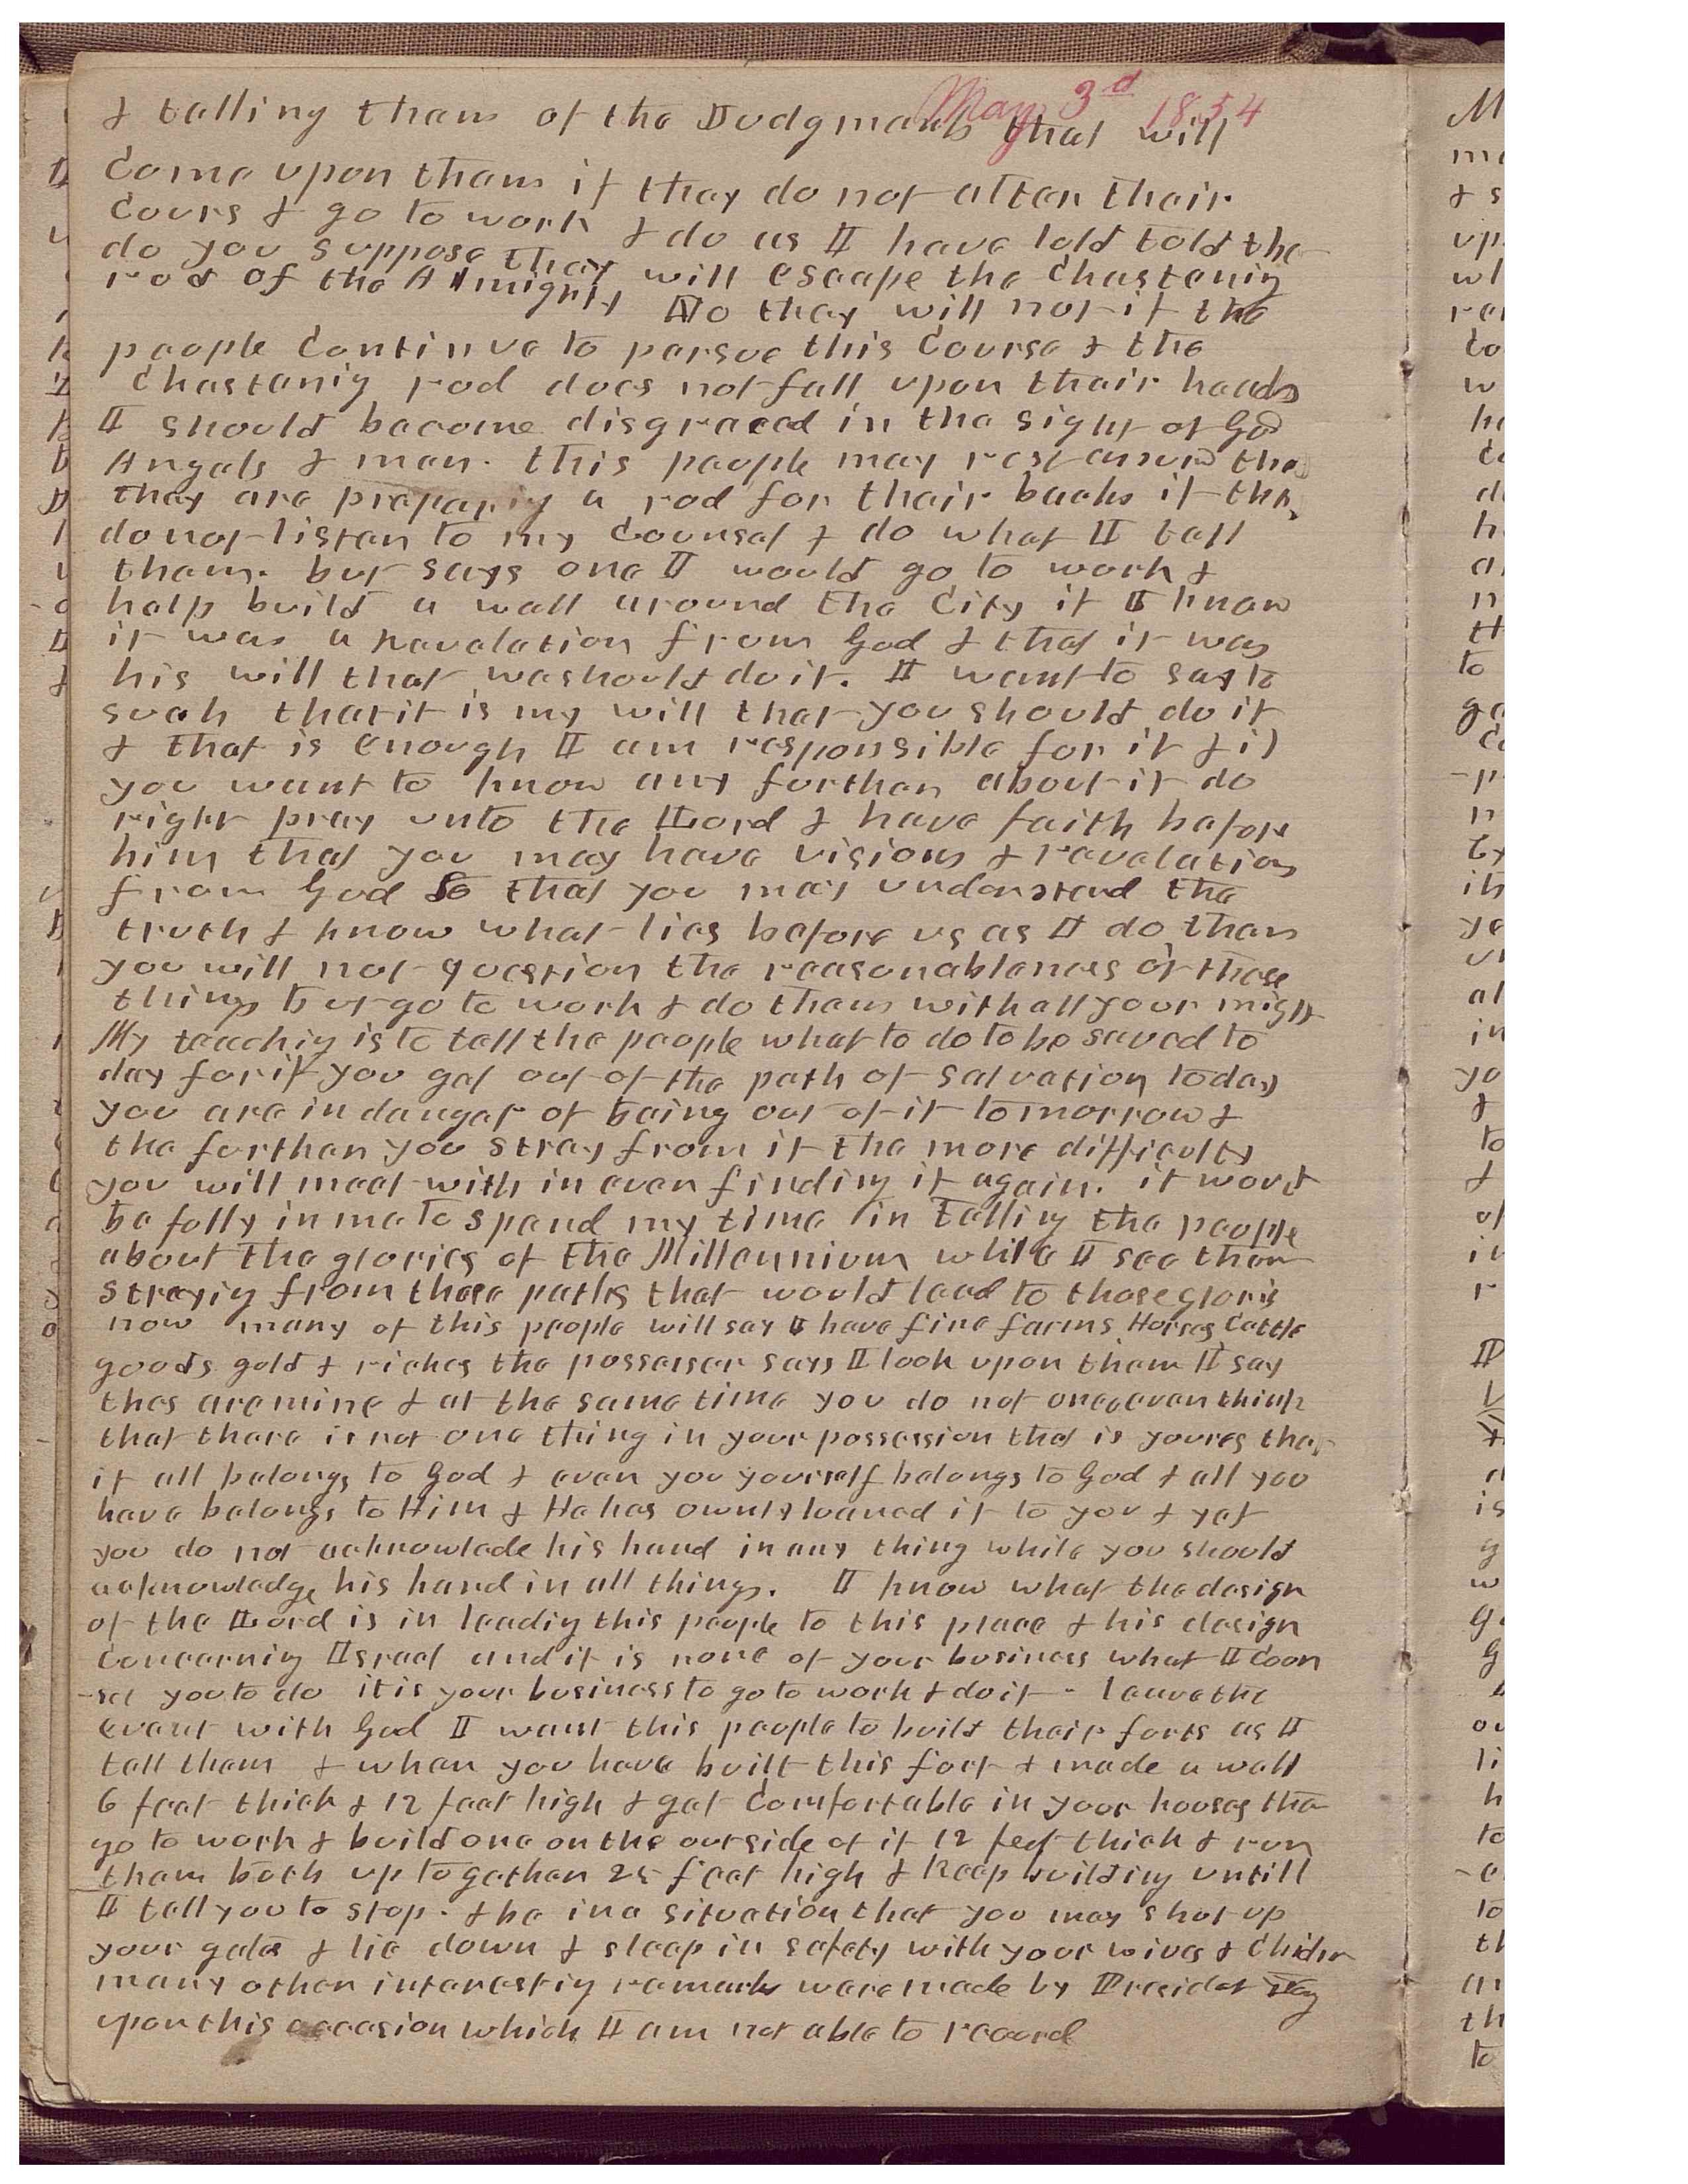 May 3d 1854
& telling them of the Judgments that will
Come upon them if they do not alter their
Cours & go to work & do as I have told told the
do you suppose they will escape the Chastenig
rod of the Almighty No they will not if the
people Continue to persue this Course & the
Chastenig rod does not fall upon their heads
I should become disgraced in the sight of God
Angels & men. this people may rest assured the
they are preparig a rod for their backs if the
do not listen to my Counsel & do what I tell
them. but says one I would go to work &
help build a wall around the City if I knew
it was a revelation from God & that it was
his will that we should do it. I want to say to
such that it is my will that you should do it
& that is enough I am responsible for it & if
you want to know any further about it do
right pray unto the Lord & have faith before
him that you may have visions & revelations
from God so that you may understand the
truth & know what lies before us as I do then
you will not question the reasonableness of these
things but go to work & do them with all your might
My teachig is to tell the people what to do to be saved to
day for if you get out of the path of salvation today
you are in danger of being out of it tomorrow &
the further you stray from it the more difficulty
you will meet with in ever finding it again. it would
be folly in me to spend my time in telling the people
about the glories of the Millennium while I see them
strayig from those paths that would lead to those gloris
now many of this people will say I have fine farms Horses Cattle
goods gold & riches the possesser says I look upon them I say
thes are mine & at the same time you do not once even think
that there is not one thing in your possession that is youres that
it all belongs to God & even you yourself belongs to God & all you
have belongs to Him & He has ownly loaned it to you & yet
you do not acknowlede his hand in any thing while you should
acknowledge his hand in all things. I know what the design
of the Lord is in leadig this people to this place & his design
Concernig Israel and it is none of your business what I Coun
-sel you to do it is your business to go to work & do it - leave the
event with God I want this people to build their forts as I
tell them & when you have built this fort & made a wall
6 feet thick & 12 feet high & get Comfortable in your houses the
go to work & build one on the outside of it 12 feet thick & run
them both up together 25 feet high & keep building untill
I tell you to stop. & be in a situation that you may shut up
your gates & lie down & sleep in safety with your wives & Childn
many other interestig remarks were made by Presidet
upon this occasion which I am not able to record